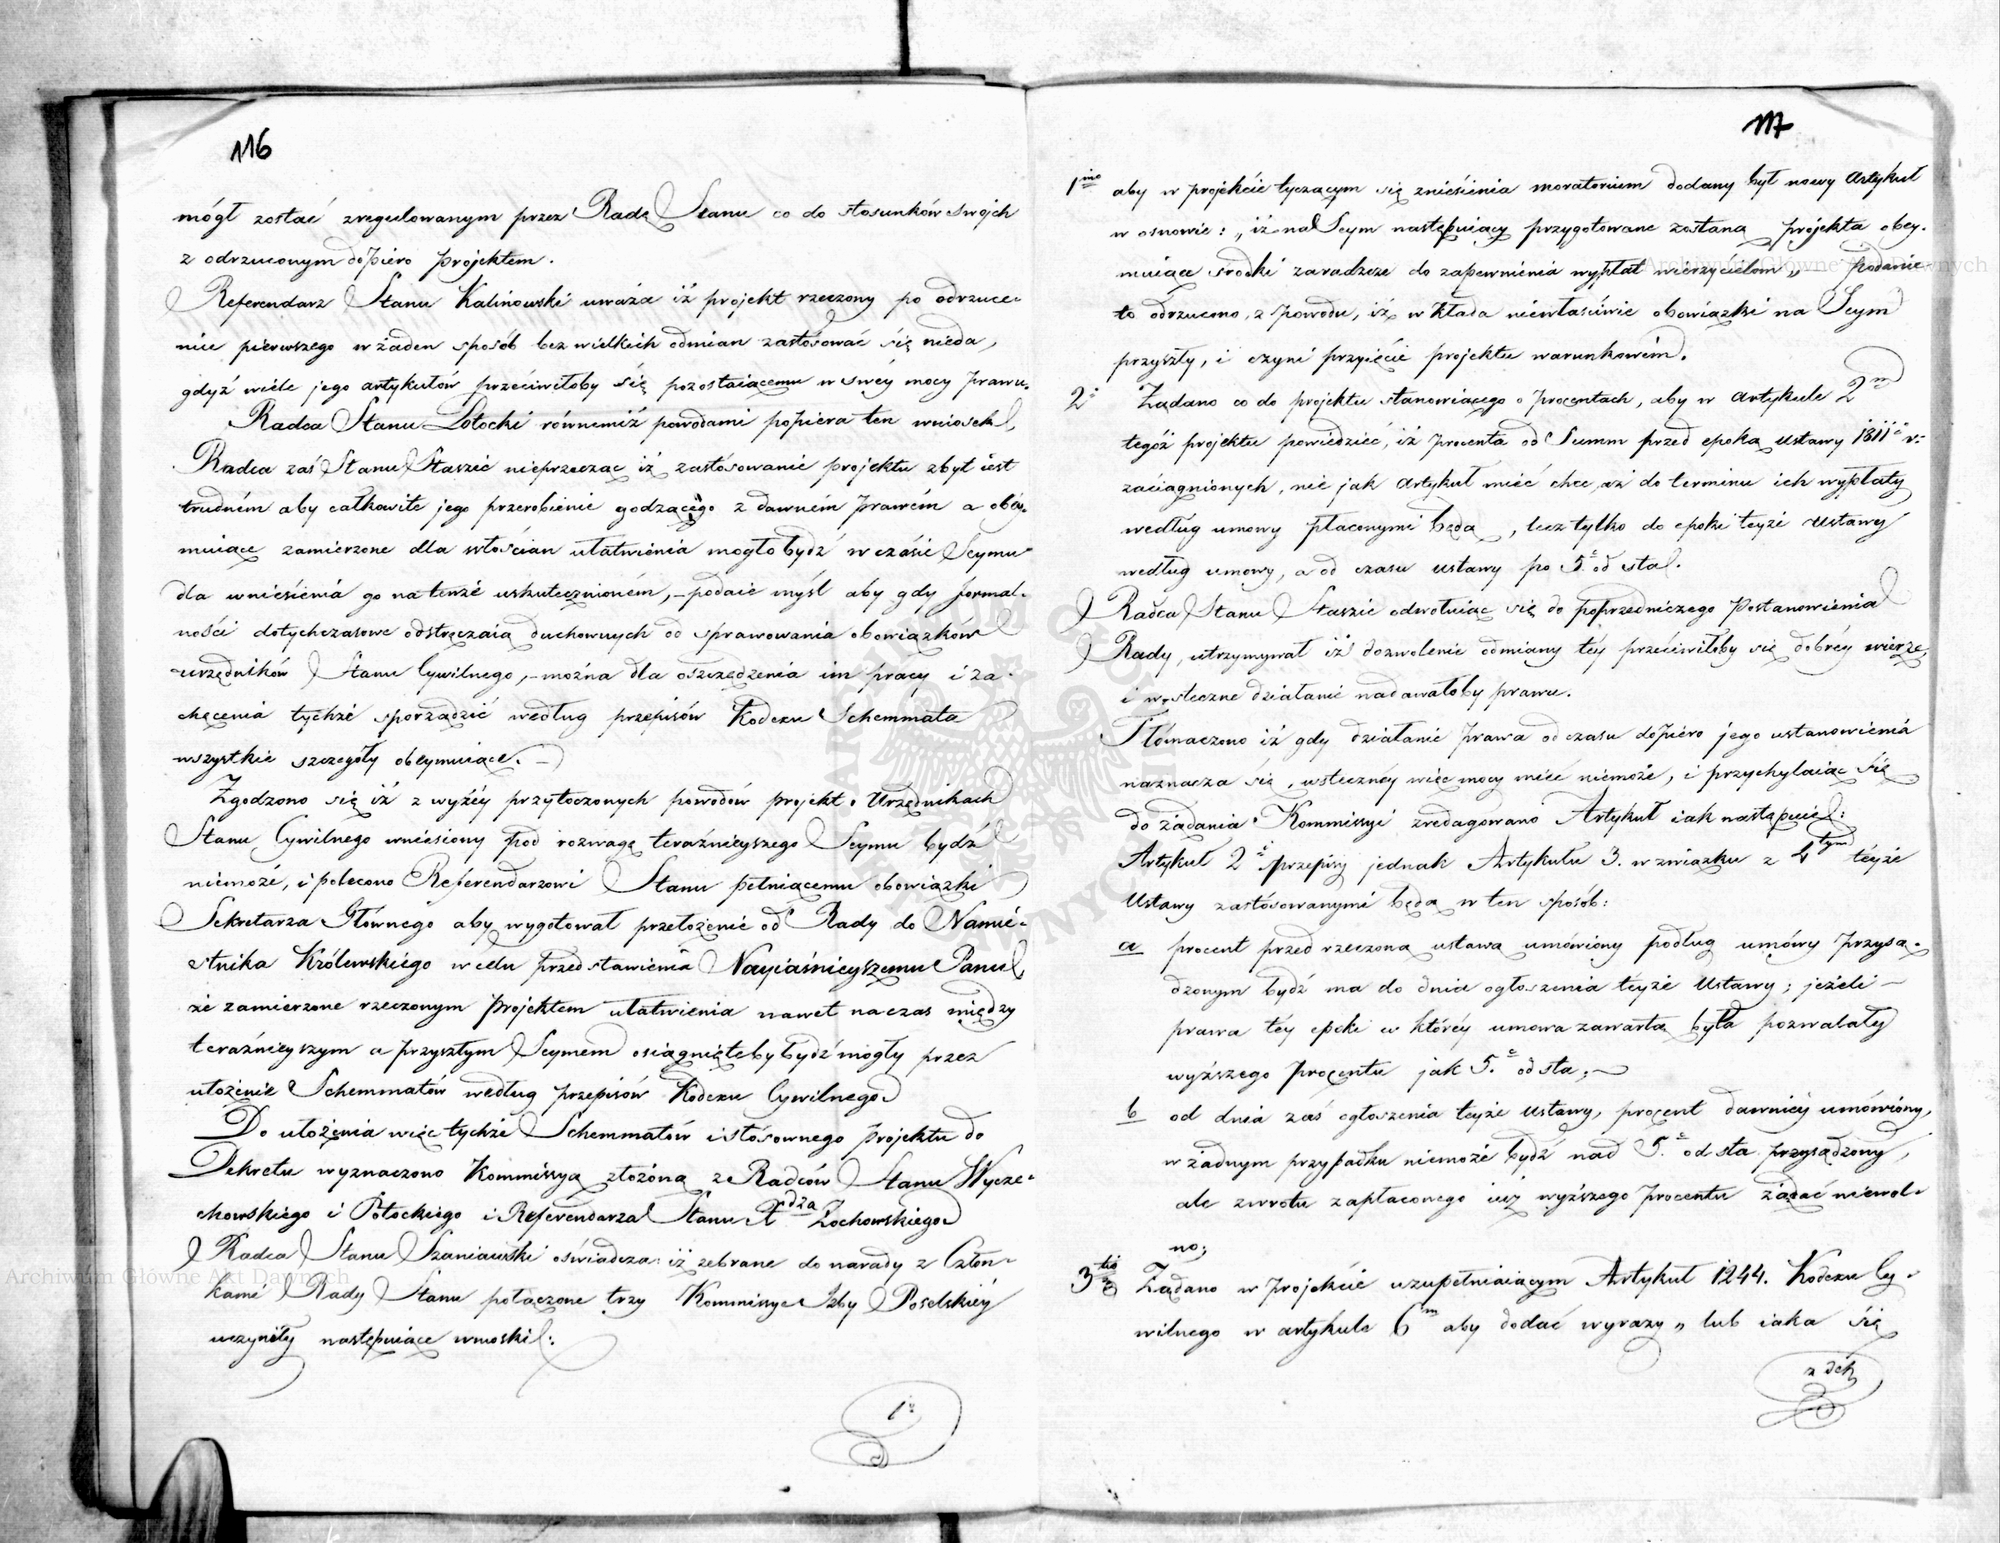 116
mógł zostać zregulowanym przez Radę Stanu co do stosunków swoich
z odrzuconym dopiero projektem.
Referendarz Stanu Kalinowski uważa iż projekt rzeczony po odrzuce-
niu pierwszego w żaden sposób bez wielkich odmian zastosować się nieda,
gdyż wiele jego artykułów przeciwiłoby się pozostaiącemu w swéy mocy prawu.
Radca Stanu Potocki równemiż powodami popiera ten wniosek,
Radca zaś Stanu Staszic nieprzecząc iż zastosowanie projektu zbyt iest
trudném aby całkowite jego przerobienie godzącégo z dawném prawém a obey-
muiące zamierzone dla włościan ułatwienia mogło bydź w czasie Seymu
dla wniesienia go na tenże uskutecznioném, - podaie myśl aby gdy formal-
ności dotychczasowe odstręczaią duchownych od sprawowania obowiązków
urzędników Stanu Cywilnego, - można dla oszczędzenia im pracy i za-
chęcenia tychże sporządzić według przepisów Kodexu Schemmata
wszystkie szczegóły obeymuiące. —
Zgodzono się iż z wyżéy przytoczonych powodów projekt o Urzędnikach
Stanu Cywilnego wniesiony pod rozwagę teraźnieyszego Seymu bydź
niemoże, i polecono Referendarzowi Stanu pełniącemu obowiązki
Sekretarza Głównego aby wygotował przełożenie od Rady do Namie-
stnika Królewskiego w celu przedstawienia Nayiaśnieyszemu Panu,
że zamierzone rzeczonym projektem ułatwienia nawet na czas między
teraźnieyszym a przyszłym Seymem osiągnięteby bydź mogły przez
ułożenie Schemmatów według przepisów Kodexu Cywilnego
Do ułożenia więc tychże Schemmatów i stósownego projektu do
Dekretu wyznaczono Kommissyą złożoną z Radców Stanu Wycze-
chowskiego i Potockiego i Referendarza Stanu Xdza Zochowskiego
Radca Stanu Szaniawski oświadcza iż zebrane do narady z Człon-
kami Rady Stanu połączone trzy Kommissye Izby Poselskiéy
uczyniły następuiące wnioski:
1º
117
1mo aby w projekcie tyczącym się zniesienia moratorium dodany był nowy Artykuł
w osnowie: „iż na Seym następuiący przygotowane zostaną projekta obey-
muiące środki zaradcze do zapewnienia wypłat wierzycielom„ podanie
to odrzucono, z powodu, iż wkłada niewłaściwie obowiązki na Seym
przyszły, i czyni przyięcie projektu warunkowém.
2º Żądano co do projektu stanowiącego o procentach, aby w Artykule 2m
tegóż projektu powiedzieć, iż procenta od Summ przed epoką ustawy 1811º r:
zaciągnionych, nie jak Artykuł mieć chce, aż do terminu ich wypłaty
według umowy płaconymi będą, lecz tylko do epoki teyże Ustawy
według umowy, a od czasu ustawy po 5. od sta.
Radca Stanu Staszic odwołuiąc się do poprzedniczego Postanowienia
Rady, utrzymywał iż dozwolenie odmiany téy przeciwiłoby się dobréy wierze,
i wsteczne działanie nadawałoby prawu.
Tłómaczono iż gdy działanie prawa od czasu dopiéro jego ustanowienia
naznacza się, wstecznéy więc mocy mieć niemoże, i przychylaiąc się
do żądania Kommissyi zredagowano Artykuł iak następuie:
Artykuł 2. przepisy jednak Artykułu 3. w związku z 4tym teyże
Ustawy zastósowanymi będą w ten sposób:
a procent przed rzeczoną ustawą umówiony podług umówy przysą-
dzonym bydź ma do dnia ogłoszenia teyże Ustawy; jeżeli —
prawa téy epoki w któréy umowa zawartą była pozwalały
wyższego procentu jak 5. od sta; —
b od dnia zaś ogłoszenia teyże Ustawy, procent dawniéy umówiony,
w żadnym przypadku niemoże bydź nad 5. od sta przysądzony,
ale zwrotu zapłaconego iuż wyższego procentu żądać niewol-
no;
3tio Żądano w Projekcie uzupełniaiącym Artykuł 1244. Kodexu Cy-
wilnego w artykule 6m aby dodać wyrazy „lub iaka się